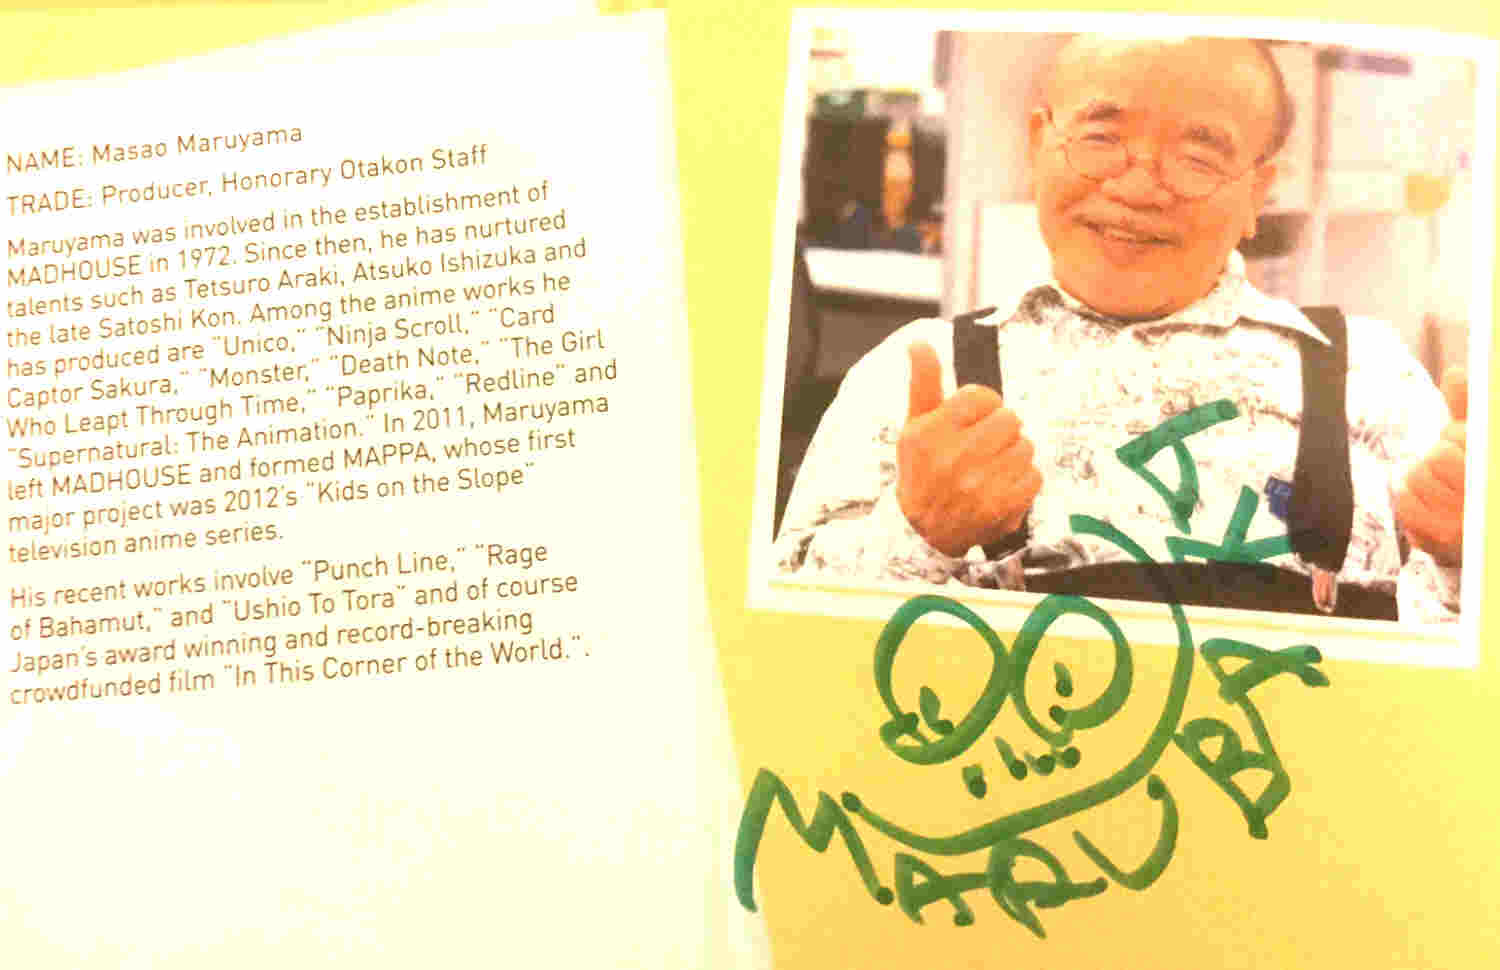 NAME: Masao Maruyama
TRADE: Producer, Honorary Otakon Staff
Maruyama was involved in the establishment of
MADHOUSE in 1972. Since then, he has nurtured
talents such as Tetsuro Araki, Atsuko Ishizuka and
the late Satoshi Kon. Among the anime works he
has produced are "Unico," "Ninja Scroll," "Card
Captor Sakura," "Monster," "Death Note," "The Girl
Who Leapt Through Time," "Paprika," "Redline" and
"Supernatural: The Animation." In 2011, Maruyama
left MADHOUSE and formed MAPPA, whose first
major project was 2012's "Kids on the Slope"
television anime series.
His recent works involve "Punch Line," "Rage
of Bahamut," and "Ushio To Tora" and of course
Japan's award winning and record-breaking
crowdfunded film "In This Corner of the World.".
MARUBA